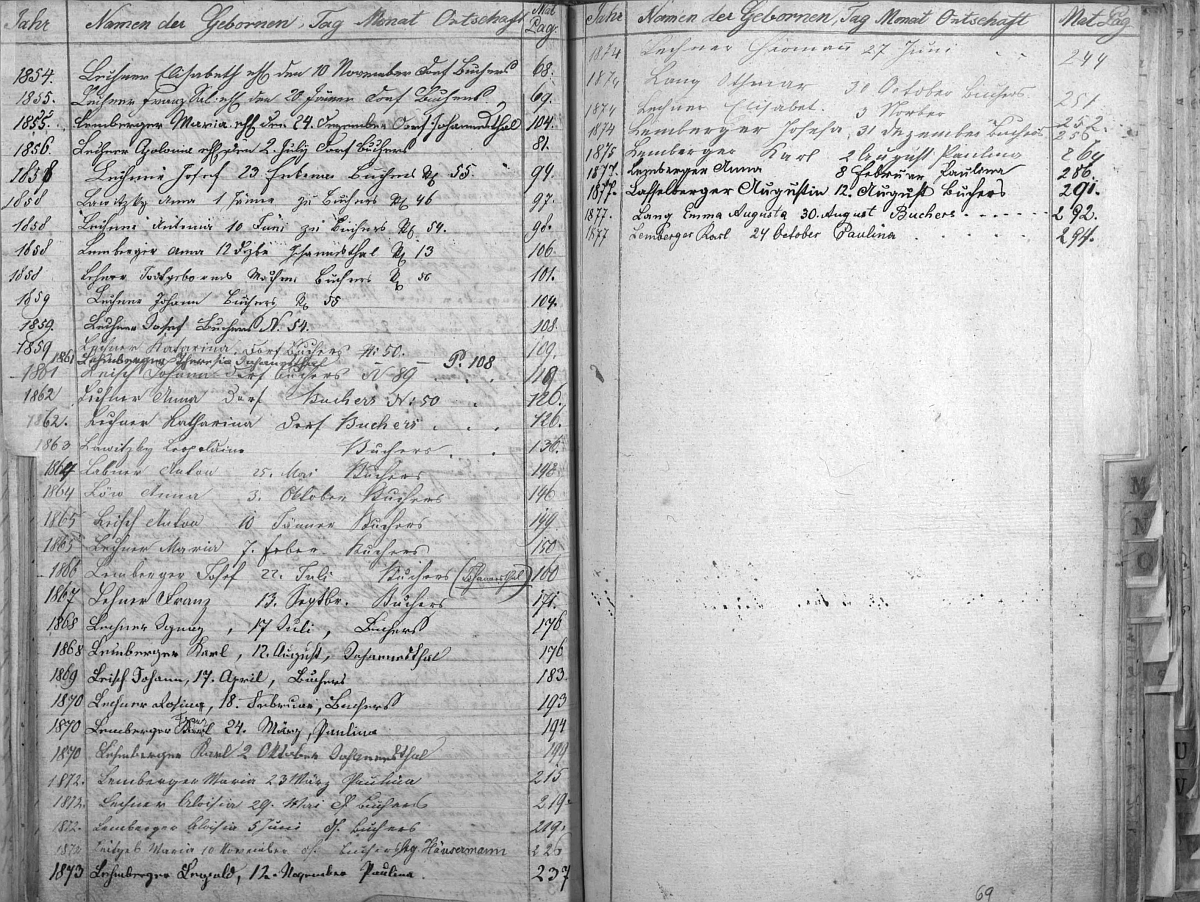 Jahr Namen der Gebornen, Tag Monat Ortschaft Mat Pag.
1854. Lechner Elisabeth ehl den 10 November Dorf Buchers 68.
1855. Lechner Franz Sal. ehl. den 28 Jänner Dorf Buchers 69.
1855. Lemberger Maria ehl den 24. Dezember Dorf Johannesthal 104.
1856. Lechner Apolonia ehl den 2. July Dorf Buchers 81.
1858 Lechner Josef 23 Buchers No 55. 94.
1858 Lawitzky Anna 1 Jänner zu Buchers No 46 97.
1858 Lechner 10 Juni zu Buchers No. 54. 98.
1858 Lemberger Anna 12 Johannesthal No 13 106.
1858 Lehner Todtgebornes Buchers No 56 101.
1859 Lechner Johann Buchers No 55 104.
1859. Lechner Josef Buchers N. 54. 108.
1859 Lechner Katarina Dorf Buchers No 50. 109.
1861 Theresia Johannesthal — P. 108
1861 Leisch Johann Dorf Buchers N 89 119
1862 Lechner Anna Dorf Buchers No 50 126.
1862. Lechner Katharina Dorf Buchers 126.
1863 Lawitzky Leopoldine Buchers 136.
1864 Lehner Anton 25. Mai Buchers 142
1864 Löw Anna 3. Oktober Buchers 146
1865 Leisch Anton 10 Jänner Buchers 149
1865 Lechner Maria 7. Feber Buchers 150
1866 Lemberger Josef 22. Juli Buchers (Johannesthal) 160
1867 Lehner Franz 13. Septbr. Buchers 171.
1868 Lechner Ignaz, 17 Juli, Buchers 176
1868 Lemberger Karl, 12. August, Johannesthal 176
1869 Leisch Johann, 17. April, Buchers 183.
1870 Lechner Rosina, 18. Februar, Buchers 193
1870 Lemberger Karl 24. März Paulina 194
1870 Lehmberger Karl 2 Oktober Johannesthal 199
1872. Lemberger Maria 23 März Paulina 215
1872. Lechner Aloisia 29. Mai Buchers 219.
1872. Lemberger Aloisia 5 Juni Buchers 219.
1872 Maria 10 November Buchers Häusermann 226
1873 Lehmberger Leopold, 12. November Paulina. 237
Jahr Namen der Gebornen, Tag Monat Ortschaft Mat Pag
1874 Lechner 27 Juni 244
1874 Lang Othmar 30 October Buchers 251
1874 Lechner Elisabet. 3 252
1874 Lemberger Josefa, 31 Dezember Buchers 256
1875 Lemberger Karl 2 August Paulina 264
1877. Lemberger Anna 8 Februar Paulina 286.
1877. Lasselberger Augustin 12. August Buchers 291.
1877. Lang Emma Augusta 30. August Buchers 292.
1877 Lemberger Karl 24 October Paulina 294.
M
N
O
S
U
V
69